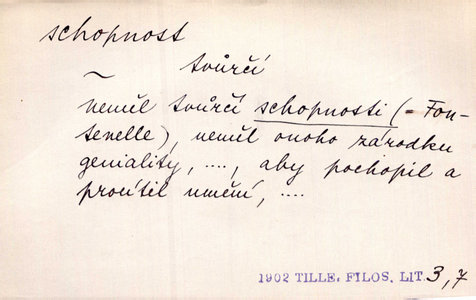 schopnost
~ tvůrčí
neměl tvůrčí schopnosti (= Fon-
tenelle), neměl onoho zárodku
geniality, ...., aby pochopil a
procítil umění, ....
1902 TILLE, FILOS. LIT. 3, 7